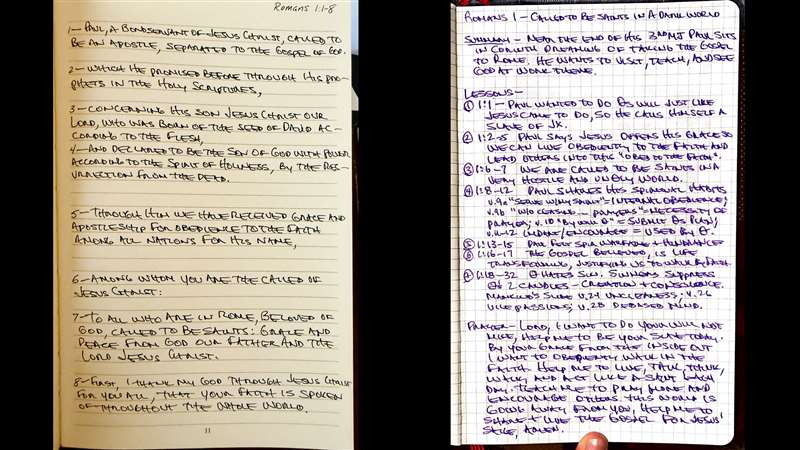 Romans 1:1-8
1- Paul, a bondservant of Jesus Christ, called to
be an apostle, separated to the gospel of God.
2- which He promised before through His pro-
phets in the Holy Scriptures,
3- concerning His Son Jesus Christ our
Lord, who was born of the seed of David ac-
cording to the flesh,
4- and declared to be the Son of God with power
according to the Spirit of Holiness, by the res-
urrection from the dead.
5- Through Him we have received grace and
apostleship for obedience to the faith
among all nations for His name,
6- among whom you are the called of
Jesus Christ:
7- To all who are in Rome, beloved of
God, called to be saints: Grace and
peace from God our Father and the
Lord Jesus Christ.
8- First, I thank my God through Jesus Christ
for you all, that your faith is spoken
of throughout the whole world.
11
Romans 1 - Called to be Saints in a Dark World
Summary - Near the end of his 3rd MJ Paul sits
in Corinth dreaming of taking the Gospel
to Rome. He wants to visit, teach, and see
God at work there.
Lessons -
① 1:1 - Paul wanted to do θs will just like
Jesus came to do, so he calls himself a
slave of JX.
② 1:2-5 Paul says Jesus offers His grace so
we can live obediently to the faith and
lead others into this "obed to the faith".
③ 1:6-7 We are called to be saints in a
very hostile and unholy world.
④ 1:8-12 Paul shares his spiritual habits
v.9a "serve w/my spirit" = internal obedience;
v.9b "w/o ceasing - prayers" = necessity of
prayer; v.10 "by will θ" = submit θs plan;
v.11-12 impart/encourage = used by θ.
⑤ 1:13-15 Paul felt spir warfare + hindrance
⑥ 1:16-17 The Gospel believed, is life
transforming, justifying us to walk by faith.
⑦ 1:18-32 θ hates sin. Sinners suppress
θs 2 candles - creation + conscience.
Mankind's slide v.24 uncleanness; v.26
vile passions; v.28 debased mind.
Prayer - Lord, I want to do your will not
mine, help me to be your slave today.
By your grace from the inside out
I want to obediently walk in the
faith. Help me to live, talk, think,
walk and act like a saint each
day. Teach me to pray more and
encourage others. This world is
going away from you, help me to
share + live the Gospel for Jesus'
sake, Amen.